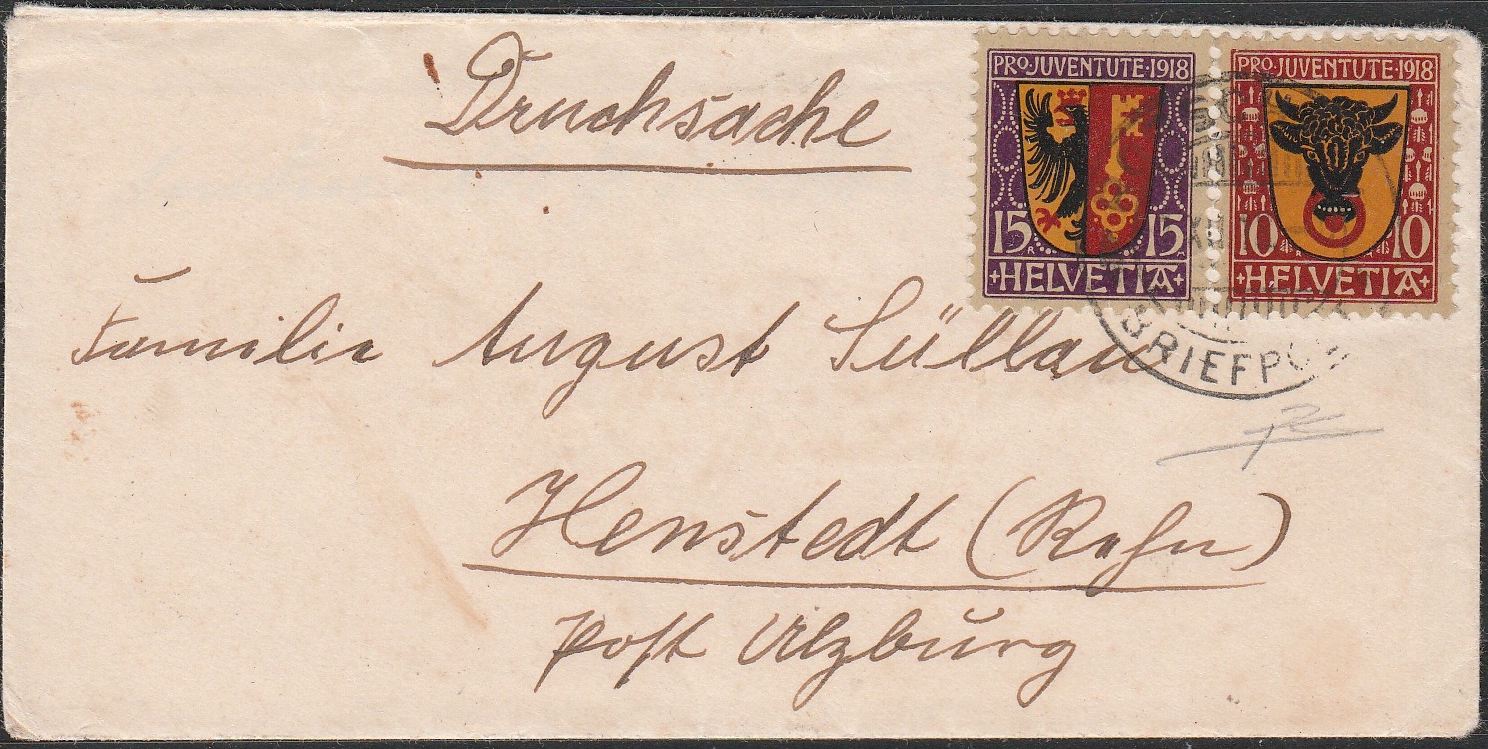 Drucksache
PRO JUVENTUTE·1918
15 15
+HELVETIA+
PRO·JUVENTUTE·1918
10 10
+HELVETIA+
XII
BRIEFPO
Familie August Süllau
Henstedt (Rhen)
post Ulzburg